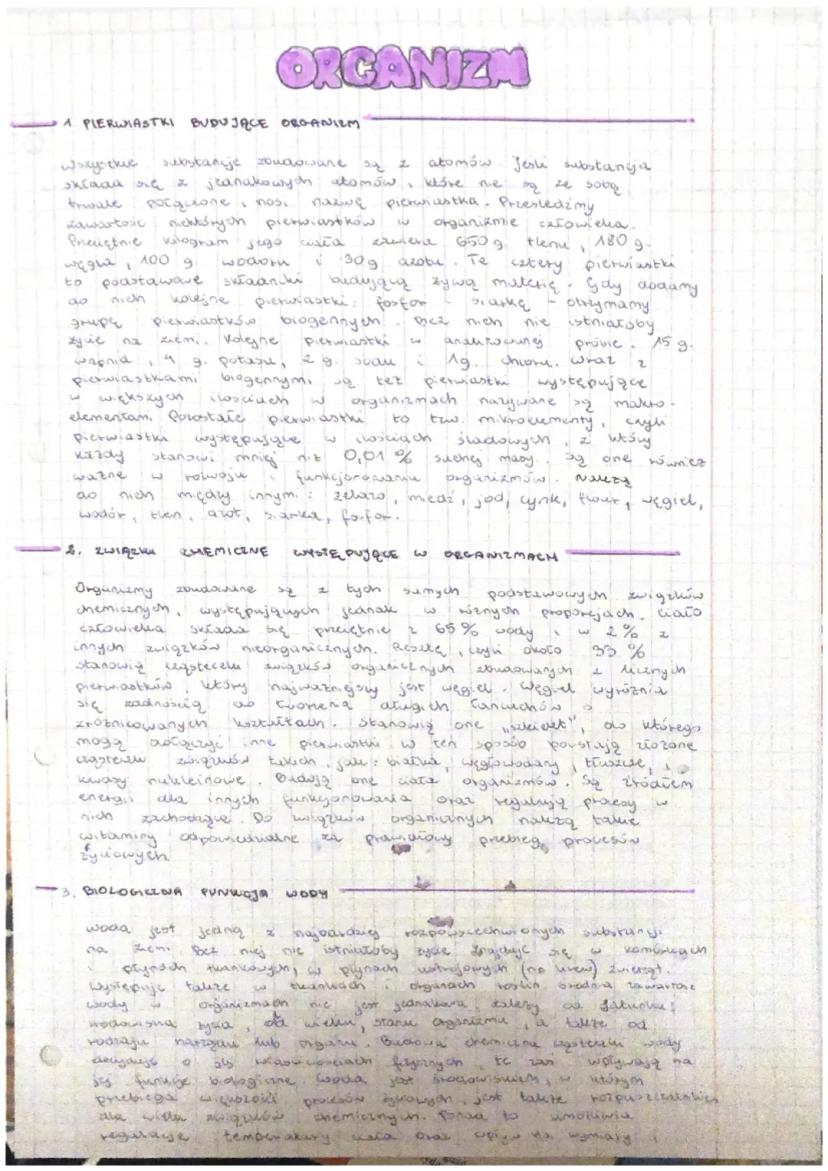 ORGANIZM
1. PIERWIASTKI BUDUJĄCE ORGANIZM
Wszystkie substancje zbudowane są z atomów. Jeśli substancja
składa się z jednakowych atomów, które nie są ze sobą
trwale połączone, nosi nazwę pierwiastka. Prześledźmy
zawartość niektórych pierwiastków w organizmie człowieka.
Przeciętnie kilogram jego ciała zawiera 650 g tlenu, 180 g.
węgla, 100 g wodoru i 30g azotu. Te cztery pierwiastki
to podstawowe składniki budującą żywą materię. Gdy dodamy
do nich kolejne pierwiastki: fosfor i siarkę - otrzymamy
grupę pierwiastków biogennych. Bez nich nie istniałoby
życie na ziemi. Kolejne pierwiastki w analizowanej próbie. 15 g.
wapnia, 4 g. potasu, 2 g. sodu i 1g. chloru. Wraz z
pierwiastkami biogennymi są też pierwiastki występujące
w większych ilościach w organizmach nazywane są makro-
elementami. Pozostałe pierwiastki to tzw. mikroelementy, czyli
pierwiastki występujące w ilościach śladowych, z który
każdy stanowi mniej niż 0,01 % suchej masy. Są one również
ważne w rozwoju i funkcjonowaniu organizmów. Należą
do nich między innymi: żelazo, miedź, jod, cynk, fluor, węgiel,
wodór, tlen, azot, siarka, fosfor.
2. ZWIĄZKI CHEMICZNE WYSTĘPUJĄCE W ORGANIZMACH
Organizmy zbudowane są z tych samych podstawowych związków
chemicznych, występujących jednak w różnych proporcjach. Ciało
człowieka składa się przeciętnie z 65 % wody i w 2 % z
innych związków nieorganicznych. Resztę, czyli około 33 %
stanowią cząsteczki związków organicznych zbudowanych z licznych
pierwiastków, który najważniejszy jest węgiel. Węgiel wyróżnia
się zdolnością do tworzenia długich łańcuchów o
zróżnicowanych kształtach. Stanowią one "szkielet", do którego
mogą dołączyć inne pierwiastki w ten sposób powstają złożone
cząsteczki związków takich, jak: białka, węglowodany, tłuszcze, i
kwasy nukleinowe. Budują one ciała organizmów. Są źródłem
energii dla innych funkcjonowania oraz regulują procesy w
nich zachodzące. Do związków organicznych należą także
witaminy odpowiedzialne za prawidłowy przebieg procesów
życiowych
3. BIOLOGICZNA FUNKCJA WODY
Woda jest jedną z najbardziej rozpowszechnionych substancji
na ziemi. Bez niej nie istniałoby życie. Znajduje się w komórkach
i płynach tkankowych, w płynach ustrojowych (np krew) zwierząt.
Występuje także w tkankach i organach roślin. Średnia zawartość
wody w organizmach nie jest jednakowa, zależy od gatunku,
środowiska życia, od wieku, stanu organizmu, a także od
rodzaju narządu lub organu. Budowa chemiczna cząsteczki wody
decyduje o jej właściwościach fizycznych, te zaś wpływają na
jej funkcje biologiczne. Woda jest środowiskiem, w którym
przebiega większość procesów życiowych, jest także rozpuszczalnikiem
dla wielu związków chemicznych. Ponad to umożliwia
regulację temperatury ciała oraz wpływ na wymiary i